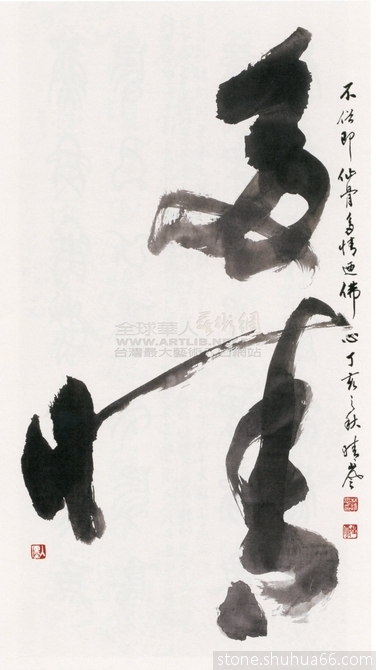 多情
不俗即仙骨多情迺佛心丁亥之秋
全球華人藝術網
WWW.ARTLIB.NET
台灣最大藝術入口網站
stone.shuhua66.com